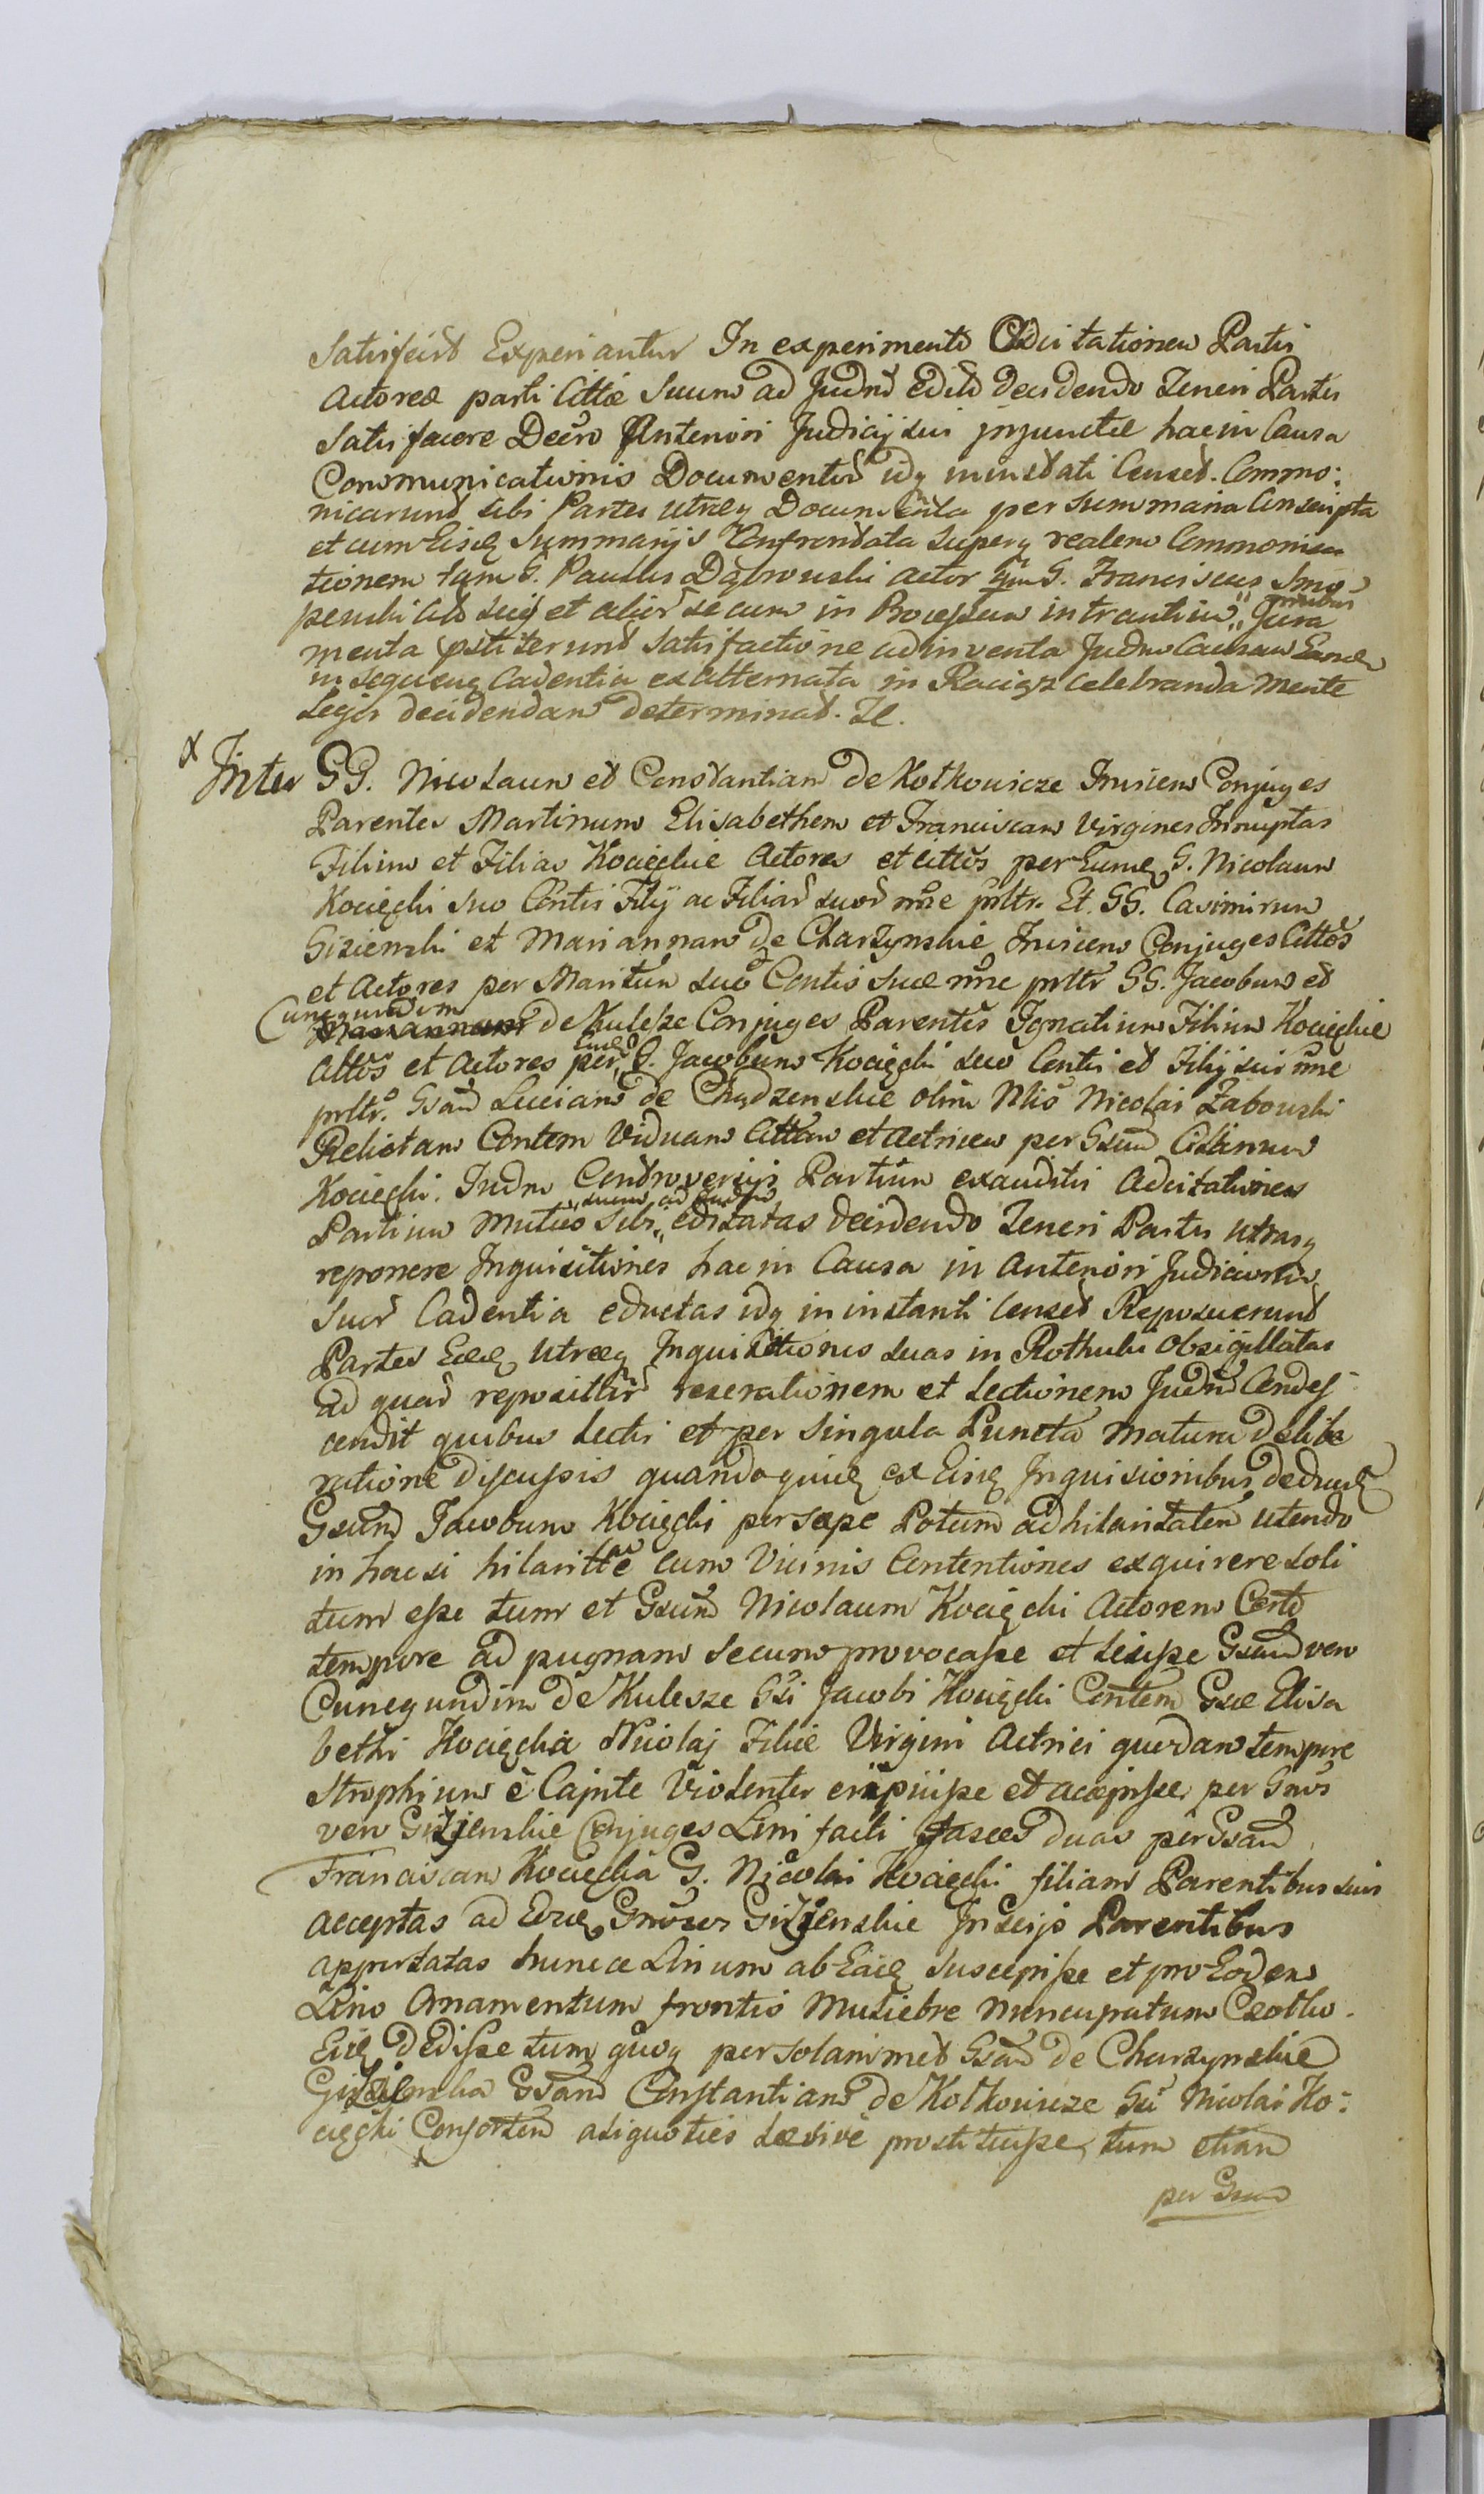 Satisfeird Experiantur In experimento Adcitationem Partis
Actoreæ parti Cittæ Suum ad Judnd Edito decidendo Teneri Partes
Satisfacere Decro Anteriori Judicij sui jnjunctæ hac in Causa
Communicationis Documentor idq in instati Censet. Commo:
nicarunt sibi Partes utræq Documenta per Summaria Conscripta
et cum Eisdq Summarijs Confrontata superq realem Commonica
tionem tam G. Paulus Dąbrowski Actor qm G. Franciscus Smo
penski Citd suiq et alior secum in Processum intrantium „ Jura
omnibus
menta pstiterunt Satisfactione adinventa Judm Causam Eandq
in sequenq Cadentia ex alternata in Raciąz celebranda mente
Legis decidendam determinat. Il.
x Inter GG. Nicolaum et Constantiam de Kotkowicze Invicem Conjuges
Parentes Martinum Elisabethem et Franciscam Virgines Innuptas
Filium et Filias Kocięckie Actores et Cittos per Eundq G. Nicolaum
Kocięcki suo Contis Filij ac Filiar suor nne prltr. Et. GG. Casimirum
Gizienski et Mariannam de Charzynskie Invicem Conjuges Cittos
et Actores per Maritum suo Contis suæ nne prltr GG. Jacobum et
Cunegundim
de Kulesze Conjuges Parentes Ignatium Filium Kocięckie
Cittos et Actores per „ G. Jacobum Kocięcki suo Contis et Filij sui nne
Eund
prltr. Gsam Lucianam de Chądzenskie olim Mco Nicolai Zabouski
Relictam Contem Viduam Cittam et Actricem per Gsum Casimirum
Kocięcki. Judm Controversijs Partium exauditis Adcitationes
Partium Mutuo Sibi „ editatas decidendo Teneri Partes utrasq
suum ad Judm
reponere Inquisitiones hac in Causa in Anteriori Judiciorum
suor Cadentia eductas idq in instanti Censet Reposuerunt
Partes Eædq utræq Inquisitiones suas in Rothulis Obsigillatas
ad quar reposittar reserationem et Lectionem Judnd Condes
cendit quibus Lectis et per Singula Puncta Matura Delibe
ratione discussis quandoquidq ex Eisdq Inquisionibus deducit
Gsum Jacobum Kocięcki persæpe Potum ad hilaritatem utendo
in hac si hilaritte cum Vicinis Contentiones exquirere Soli
tum esse tum et Gsum Nicolaum Kocięcki Actorem Certo
tempore ad pugnam Secum provocasse et Læsisse Gsam vero
Cunegundim de Kulesze Gsi Jacobi Kocięcki Contem Gsæ Elisa
bethi Kocięcka Nicolaj Filiæ Virgini Actrici quodam tempore
Strophium è Capite Violenter eripuisse et accepisse, per Gnos
vero Giziemskie Conjuges Lini facti Fasces duas per Gsam
Franciscam Kocięcka G. Nicolai Kocięcki filiam Parentibus suis
acceptas ad Eosdq Gnoses Giziemskie Inscijs Parentibus
apportatas hunc ce Linum ab Eadq Suscepisse et pro Eodem
Lino Ornamentum frontis Muliebre Nuncupatum Czolko.
Eidq Dedisse tum quoq per Solammet Gsam de Charzynskie
Giziemska Gsam Constantiam de Kotkowicze Gsi Nicolai Ko:
cięcki Consortem aliquoties Læsive prostituisse, tum etiam
per Gsum